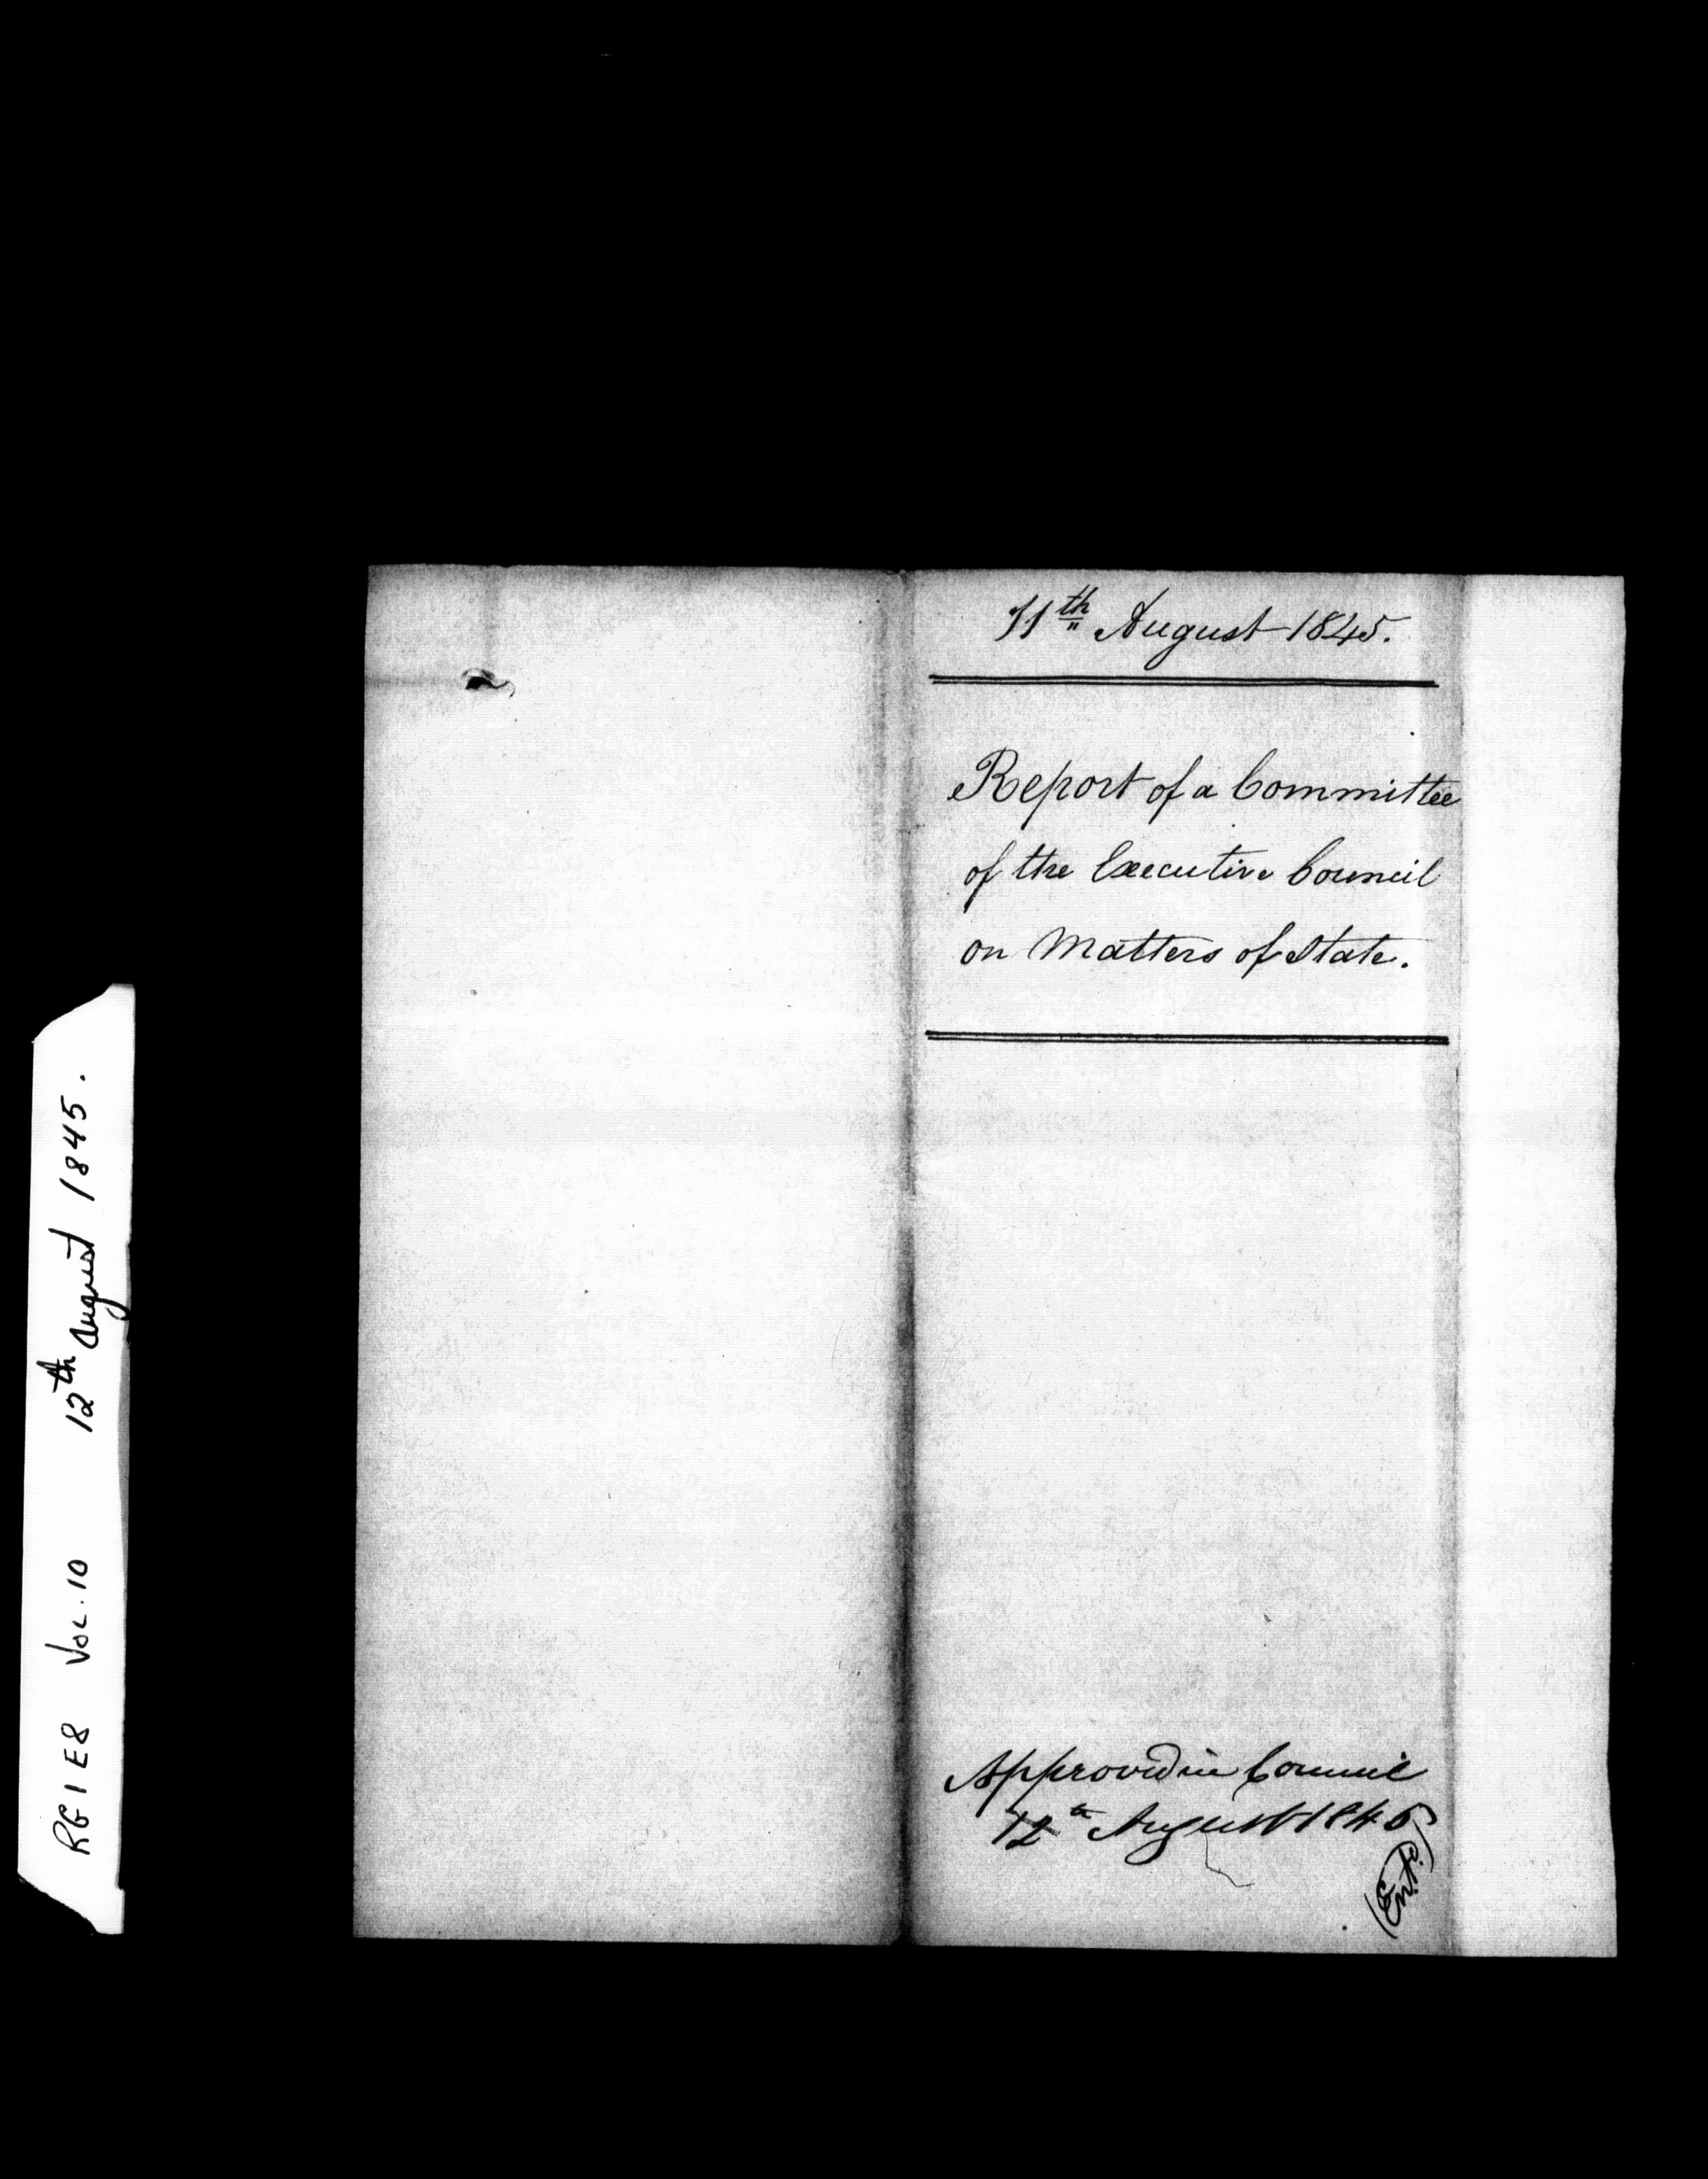 11th August 1845.
Report of a Committee
of the Executive Council
on Matters of State.
Approved in Council
12th August 1845
(Entd.)
RG 1 E8 Vol. 10 12th August 1845.